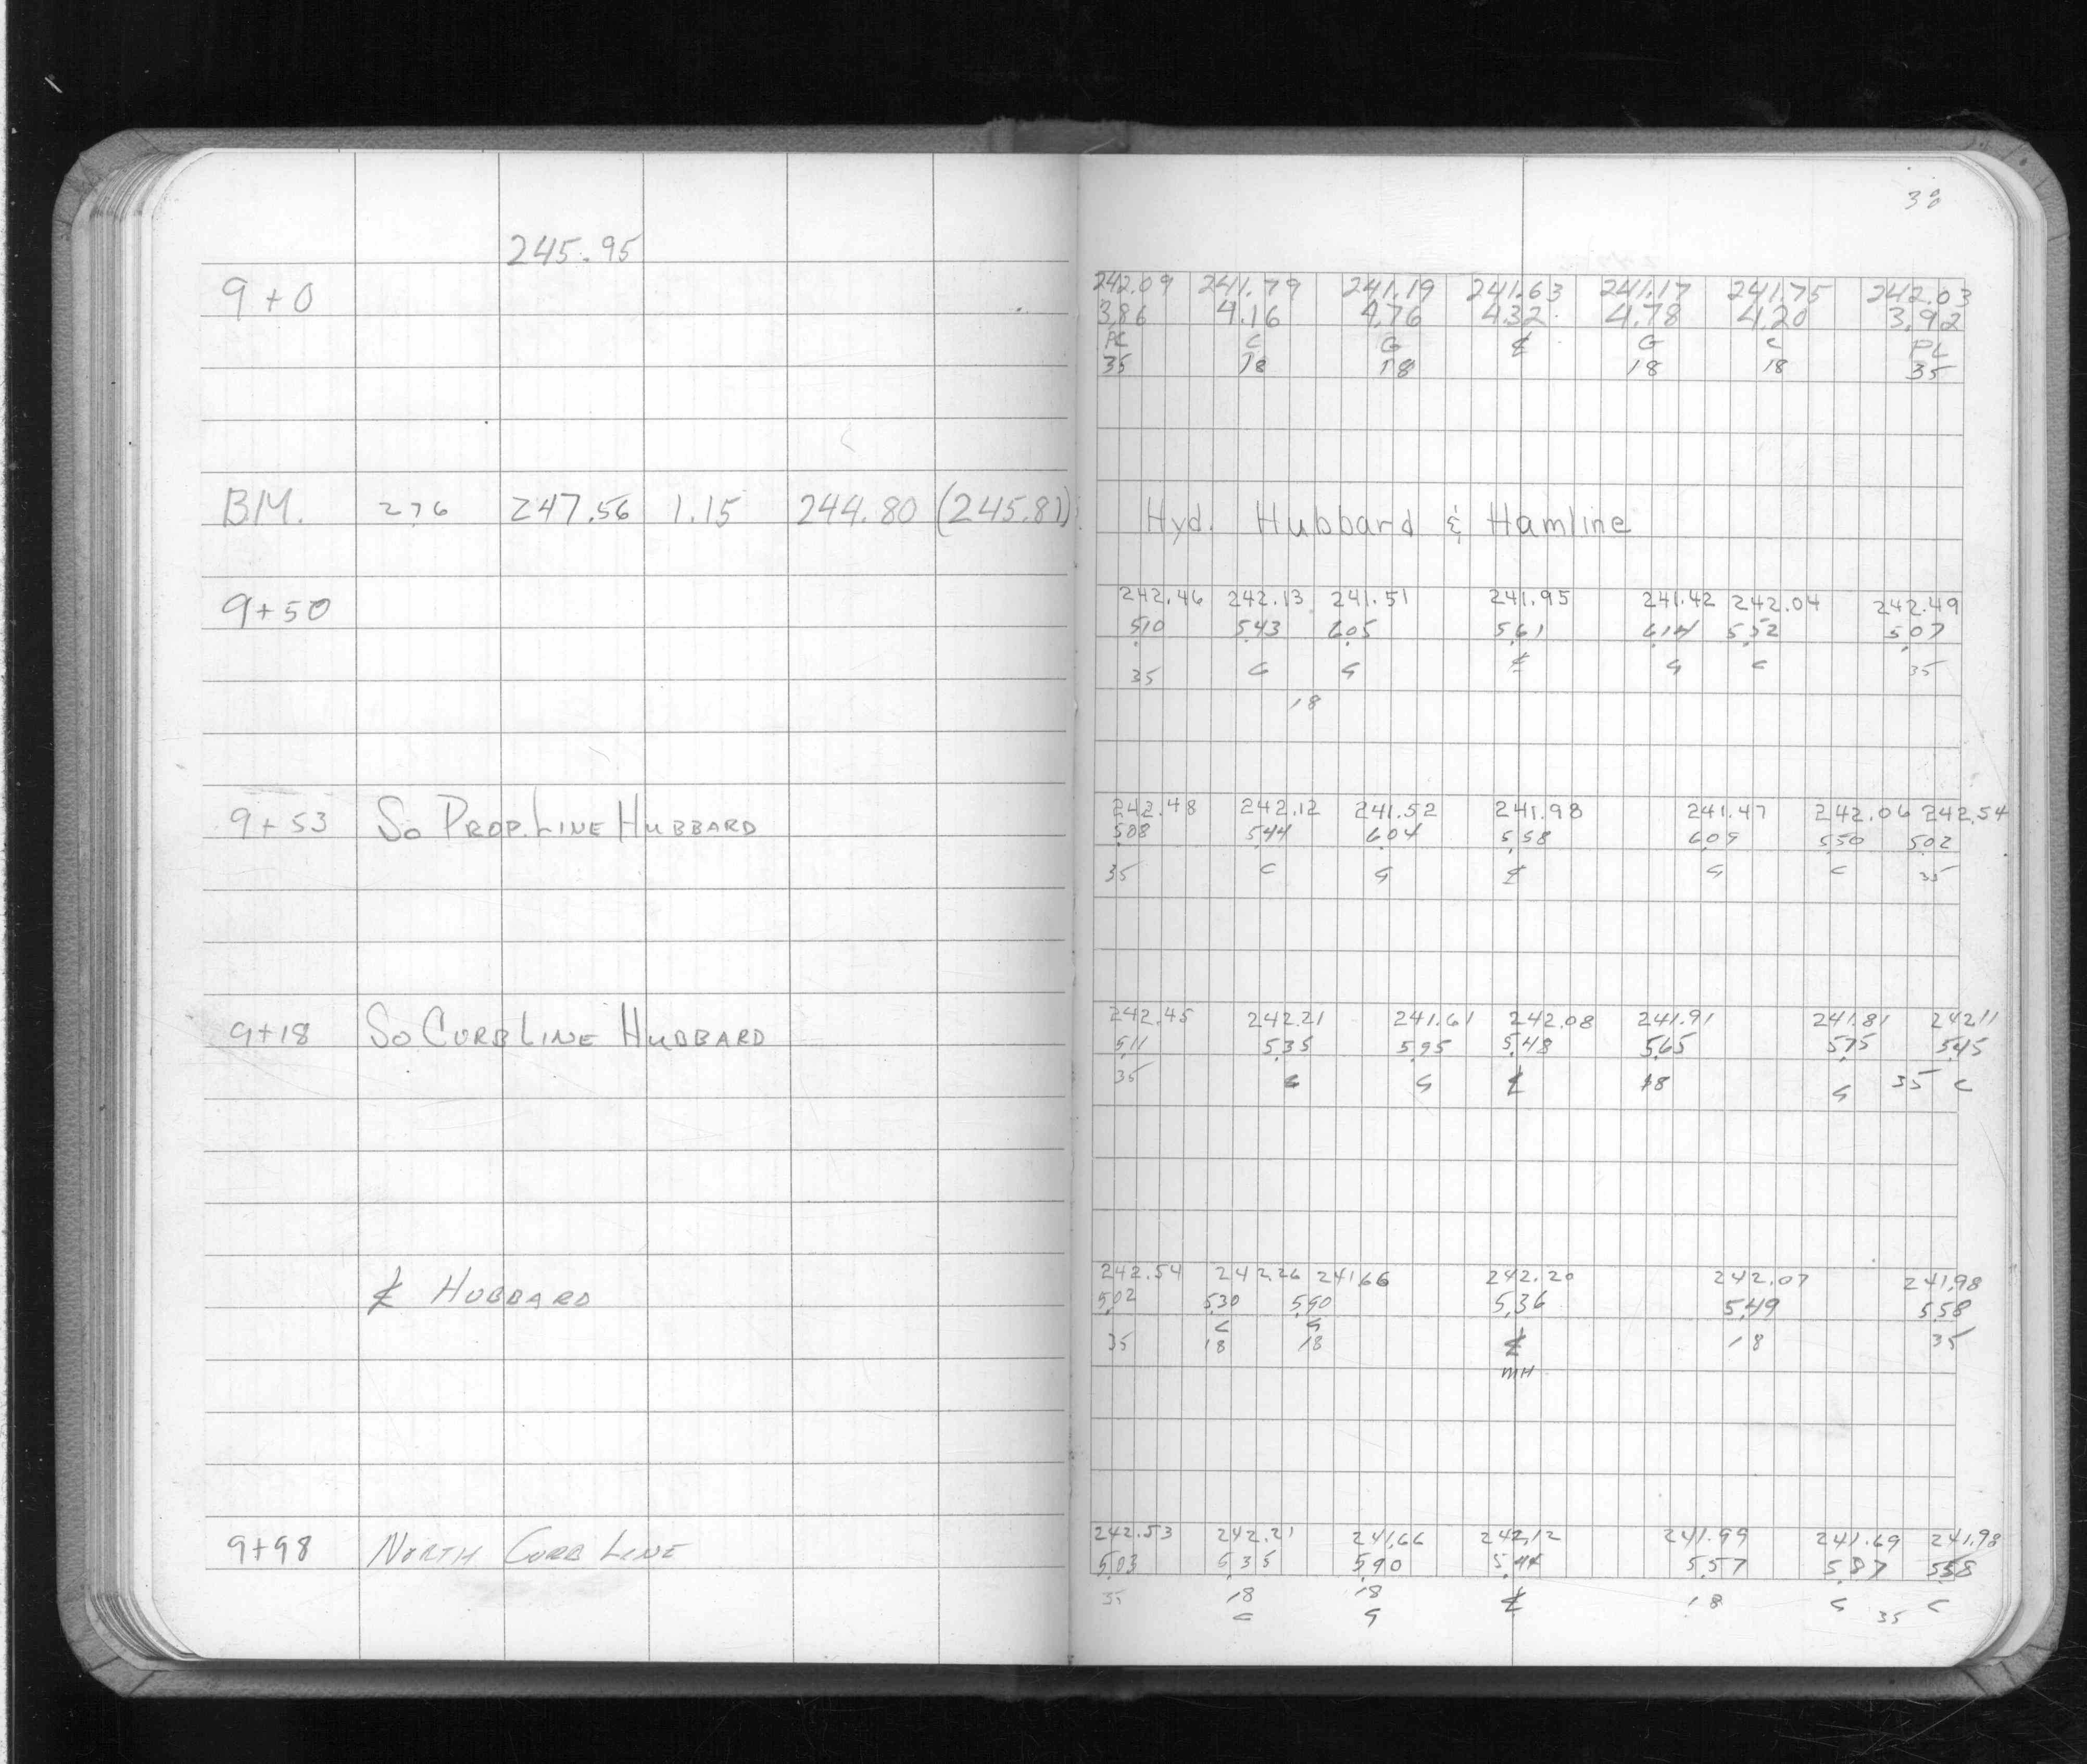 38
245.95
9+0
242.09 241.79 241.19 241.63 241.17 241.75 242.03
3.86 4.16 4.76 4.32 4.78 4.20 3.92
PL C G ℄ G C PL
35 18 18 18 18 35
B.M. 2.76 247.56 1.15 244.80 (245.81)
Hyd. Hubbard & Hamline
9+50
242.46 242.13 241.51 241.95 241.42 242.04 242.49
5.10 5.43 6.05 5.61 6.14 5.52 5.07
35 C G ℄ G C 35
18
9+53 So Prop. Line Hubbard
242.48 242.12 241.52 241.98 241.47 242.06 242.54
5.08 5.44 6.04 5.58 6.09 5.50 5.02
35 C G ℄ G C 35
9+18 So Curb Line Hubbard
242.45 242.21 241.61 242.08 241.91 241.81 242.11
5.11 5.35 5.95 5.48 5.65 5.75 5.45
35 C G ℄ 18 G 35 C
℄ Hubbard
242.54 242.26 241.66 242.20 242.07 241.98
5.02 5.30 5.90 5.36 5.49 5.58
C G
35 18 18 ℄ 18 35
MH
9+98 North Curb Line
242.53 242.21 241.66 242.12 241.99 241.69 241.98
5.03 5.35 5.90 5.44 5.57 5.87 5.58
35 18 18 ℄ 18 G 35 C
C G